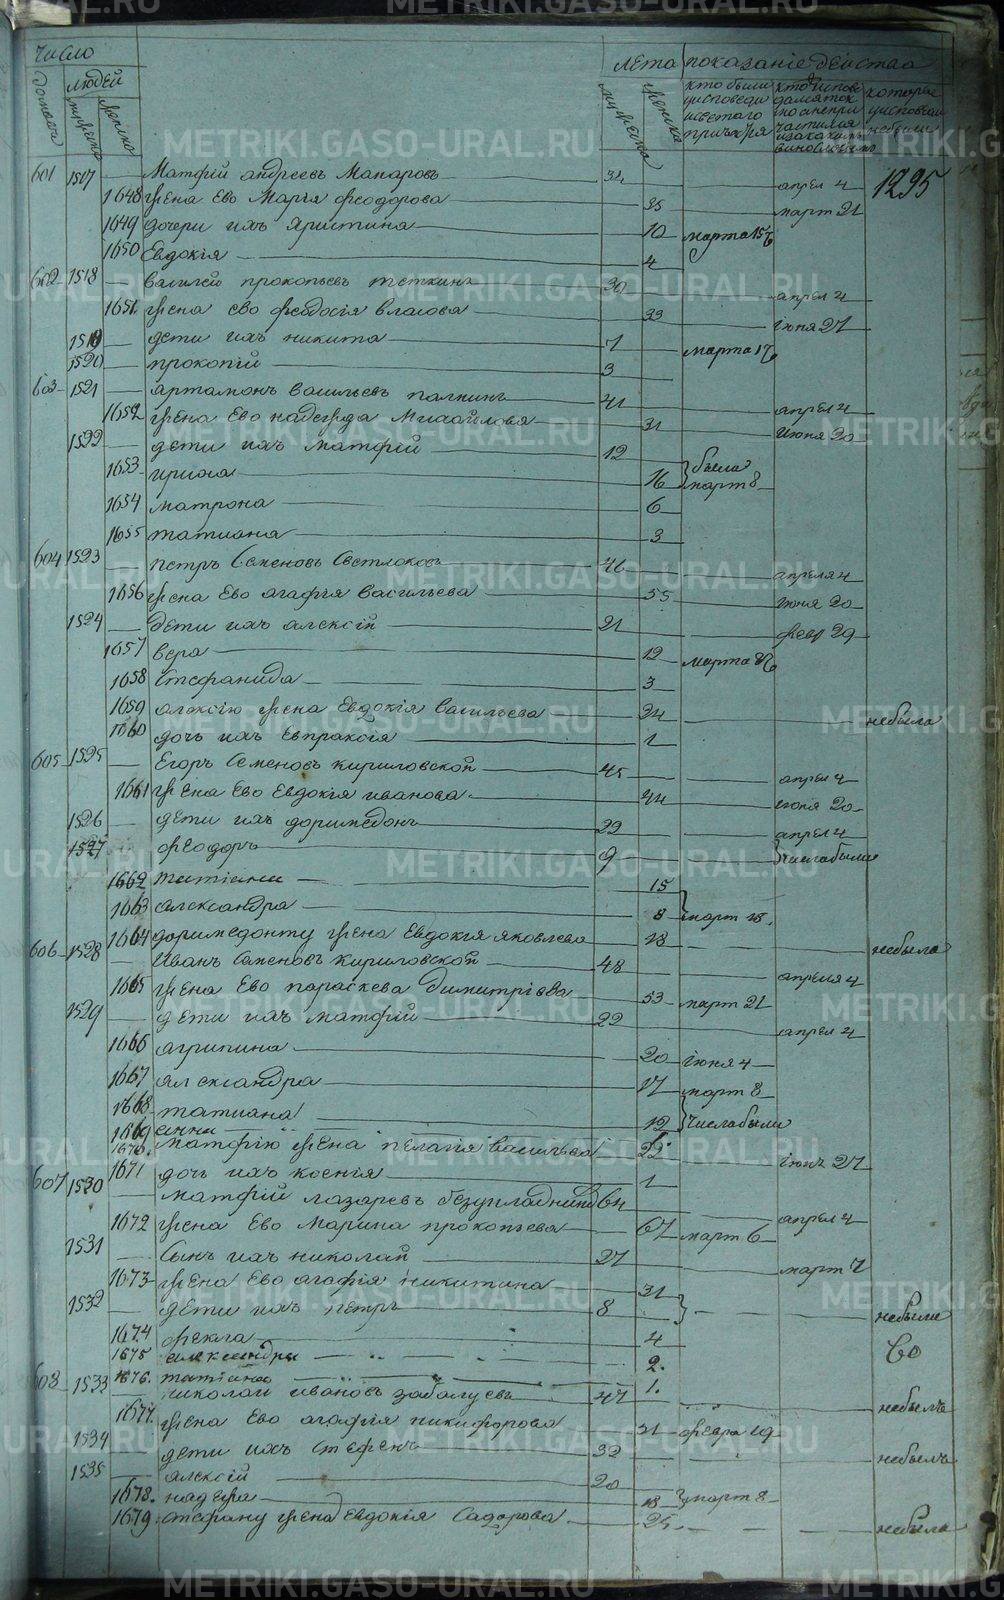 число лета показание действа
домовъ людей мужеска женска мужеска женска кто были у исповеди и святаго причастия которые у исповеди небыли
601 1517 Матфій андреевъ Макаровъ 34 апрел 4 1295
1648 жена Ево Марія феодорова 35 март 21
1649 дочери ихъ Христина 10 марта 15
1650 Евдокія 4
602 1518 василей прокопьевъ теткинъ 30 апрел 4
1651 жена ево феодосія власова 33 июня 27
1519 дети ихъ никита 7 марта 17
1520 прокопій 3
603 1521 артамонъ васильевъ палкинъ 41 апрел 4
1652 жена Ево надежда Михаилова 31 июня 20
1522 дети ихъ матфій 12
1653 ирина 16 были март 8
1654 матрона 6
1655 татиана 3
604 1523 петръ Семеновъ Светлаковъ 46 апреля 4
1656 жена Ево агафія васильева 55 июня 20
1524 дети ихъ алексій 21 февр 29
1657 вера 12 марта
1658 Стефанида 3
1659 алексію жена Евдокія васильева 24 небыла
1660 дочь ихъ Евпраксія 1
605 1525 Егоръ Семеновъ кириловской 45 апрел 4
1661 жена Ево Евдокія иванова 44 июня 20
1526 дети ихъ доримедонъ 22 апрел 4
1527 феодоръ 9 числа были
1662 татиана 15
1663 александра 8 март 18
1664 доримедонту жена Евдокія яковлева 18 небыла
606 1528 Иванъ Семеновъ кириловской 48 апреля 4
1665 жена Ево параскева димитріева 53 март 21
1529 дети ихъ матфій 22 апрел 4
1666 агрипина 20 июня 4
1667 александра 17 март 8
1668 татиана 12 числа были
1669 анна
1670 матфію жена пелагія васильева 22 июнь 27
1671 дочь ихъ ксенія 1
607 1530 матфій лазаревъ 64 апрел 4
1672 жена Ево Марина прокопьева 67 март 6
1531 Сынъ ихъ николай 27 март 7
1673 жена Ево агафія никитина 31
1532 дети ихъ петръ 8 небыли
1674 фекла 4
1675 александра 2
1676 татиана 1
608 1533 николай ивановъ забалуевъ 47 небылъ
1677 жена Ево агафія никифорова февра 19
1534 дети ихъ Стефанъ 32 небылъ
1535 алексій 20
1678 надежда 18 март 8
1679 стефану жена Евдокія 25 небыла
METRIKI.GASO-URAL.RU